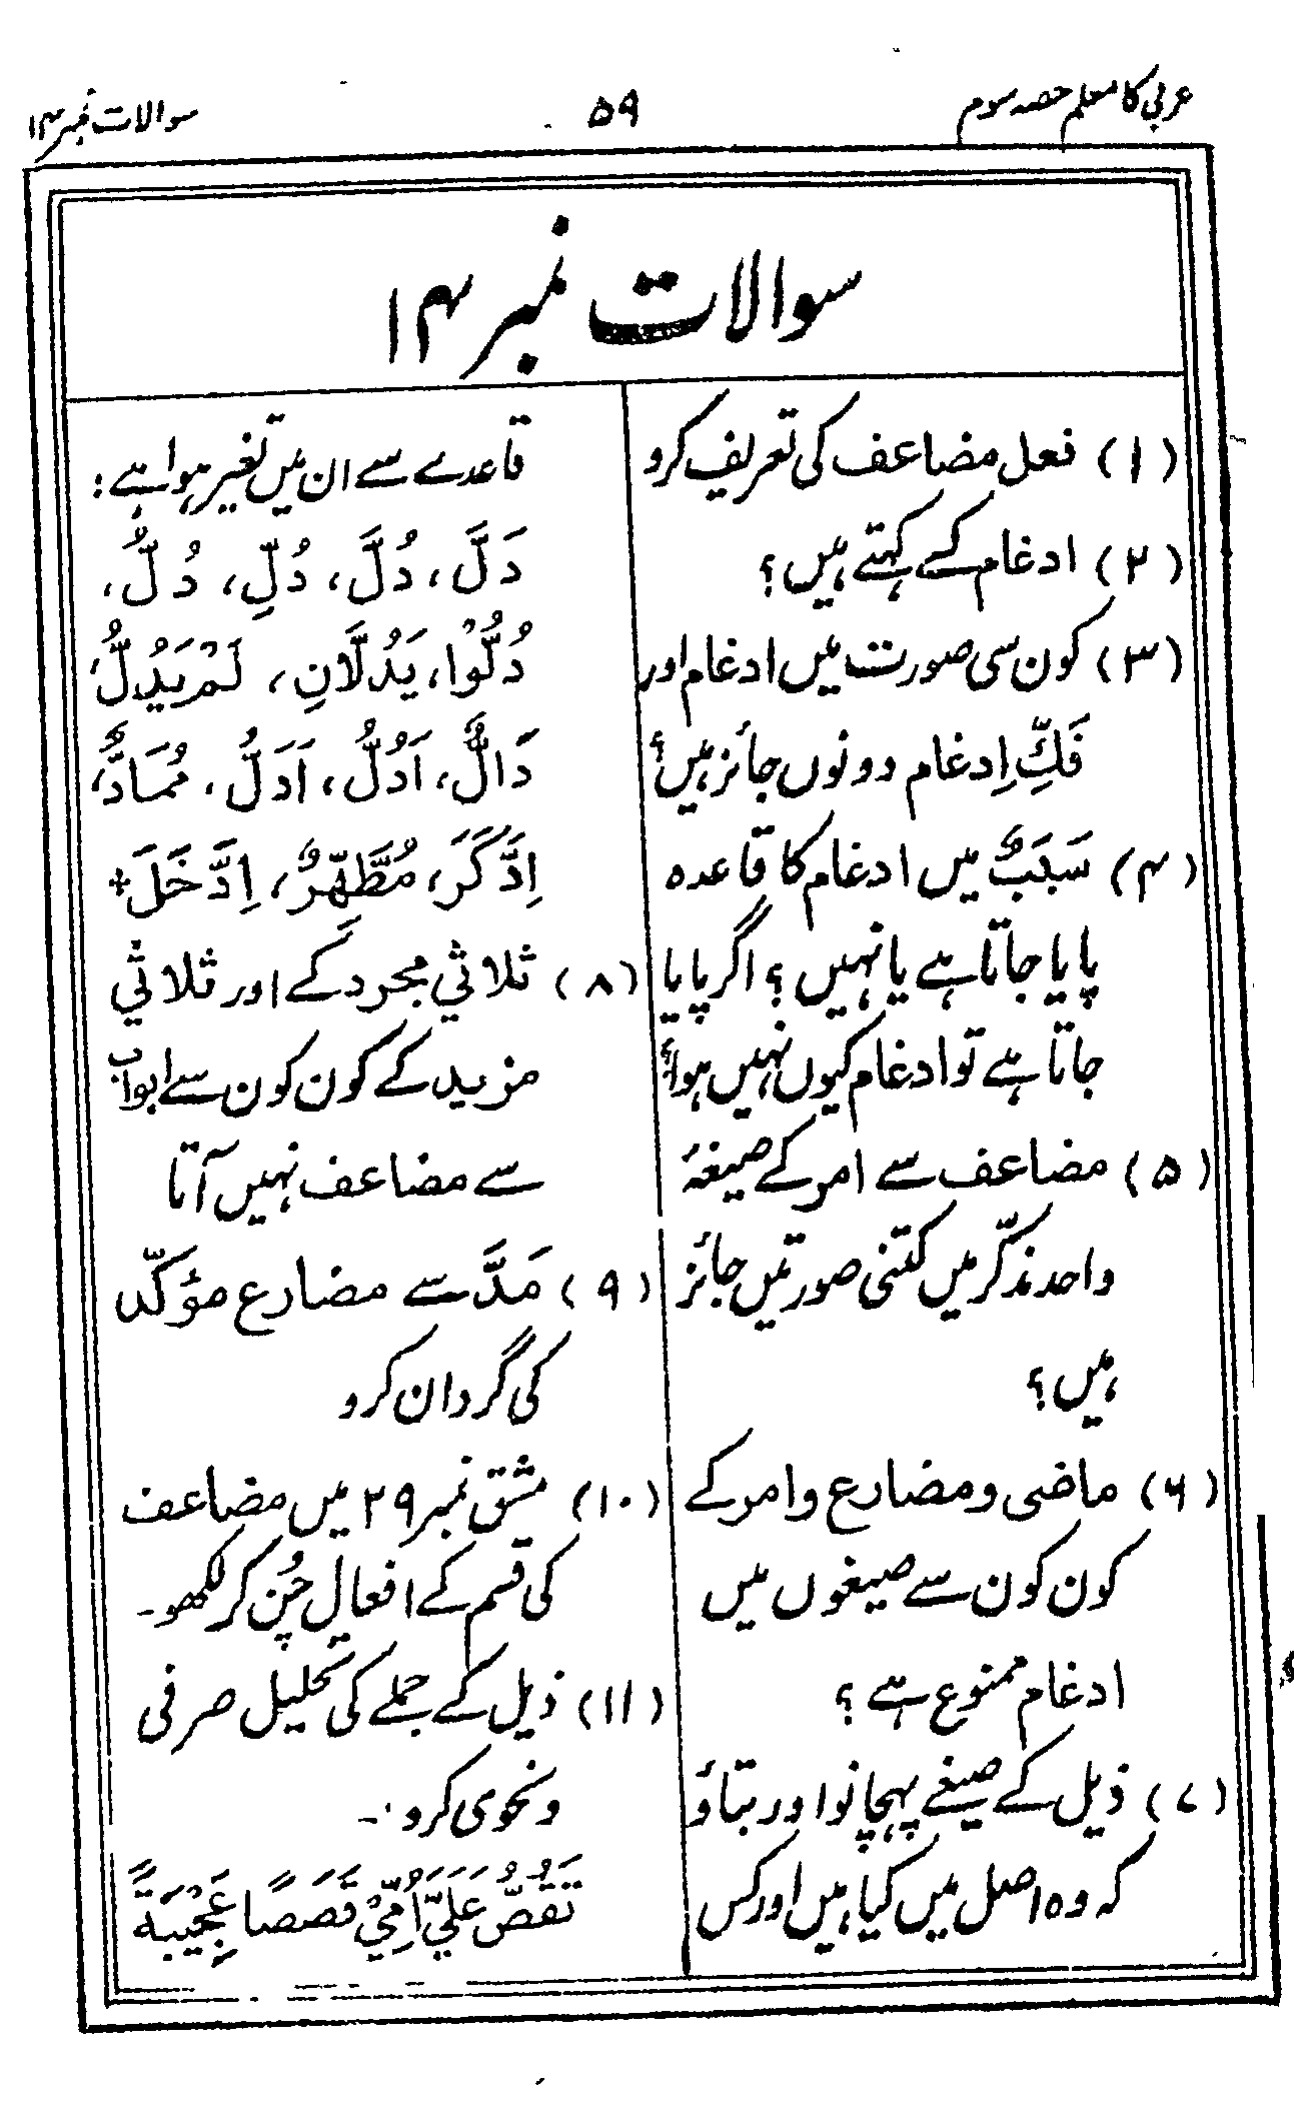 عربی کا معلم حصہ سوم
۵۹
سوالات نمبر ۱۴
سوالات نمبر ۱۴
(۱) فعل مضاعف کی تعریف کرو
(۲) ادغام کسے کہتے ہیں؟
(۳) کون سی صورت میں ادغام اور
فَكِّ اِدغام دونوں جائز ہیں؟
(۴) سَبَبٌ میں ادغام کا قاعدہ
پایا جاتا ہے یا نہیں؟ اگر پایا
جاتا ہے تو ادغام کیوں نہیں ہوا؟
(۵) مضاعف سے امر کے صیغۂ
واحد مذکّر میں کتنی صورتیں جائز
ہیں؟
(۶) ماضی و مضارع و امر کے
کون کون سے صیغوں میں
ادغام ممنوع ہے؟
(۷) ذیل کے صیغے پہچانو اور بتاؤ
کہ وہ اصل میں کیا ہیں اور کس
قاعدے سے ان میں تغیر ہوا ہے:
دَلَّ، دُلَّ، دُلِّ، دُلُّ،
دُلُّوْا، یَدُلَّانِ، لَمْ یَدُلُّ،
دَالٌّ، اَدُلُّ، اَدَلُّ، مُمَادٌّ،
اِدَّكَرَ، مُطَّهِّرٌ، اِدَّخَلَ+
(۸) ثلاثي مجرد کے اور ثلاثي
مزید کے کون کون سے ابواب
سے مضاعف نہیں آتا
(۹) مَدَّ سے مضارع مؤکّد
کی گردان کرو
(۱۰) مشق نمبر ۲۹ میں مضاعف
کی قسم کے افعال چُن کر لکھو۔
(۱۱) ذیل کے جملے کی تحلیل صرفی
و نحوی کرو۔
تَقُصُّ عَلَيَّ اُمِّيْ قَصَصًا عَجِيْبَةً